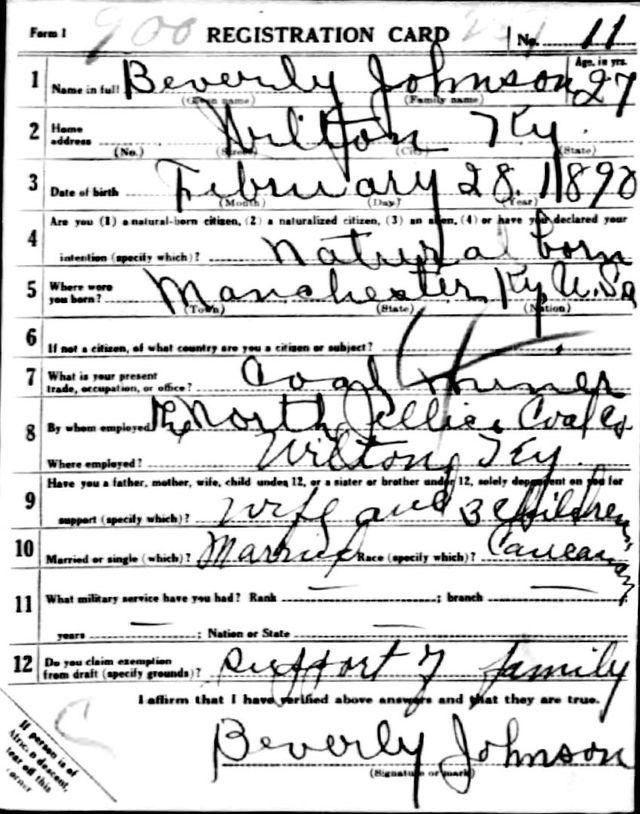 Form 1 900 REGISTRATION CARD No. 11
1 Name in full Beverly Johnson Age, in yrs. 27
(Given name) (Family name)
2 Home address Wilton Ky.
(No.) (Street) (City) (State)
3 Date of birth February 28 1890
(Month) (Day) (Year)
4 Are you (1) a natural-born citizen, (2) a naturalized citizen, (3) an alien, (4) or have you declared your
intention (specify which)? Natural born
5 Where were you born? Manchester Ky U.Sa
(Town) (State) (Nation)
6 If not a citizen, of what country are you a citizen or subject?
7 What is your present trade, occupation, or office? Coal miner
8 By whom employed The North Jellico Coal Co
Where employed? Wilton, Ky.
9 Have you a father, mother, wife, child under 12, or a sister or brother under 12, solely dependent on you for
support (specify which)? Wife and 3 children
10 Married or single (which)? Married Race (specify which)? Caucasian
11 What military service have you had? Rank — ; branch — ;
years — ; Nation or State —
12 Do you claim exemption from draft (specify grounds)? Support of family
I affirm that I have verified above answers and that they are true.
Beverly Johnson
(Signature or mark)
If person is of
African descent,
tear off this
corner